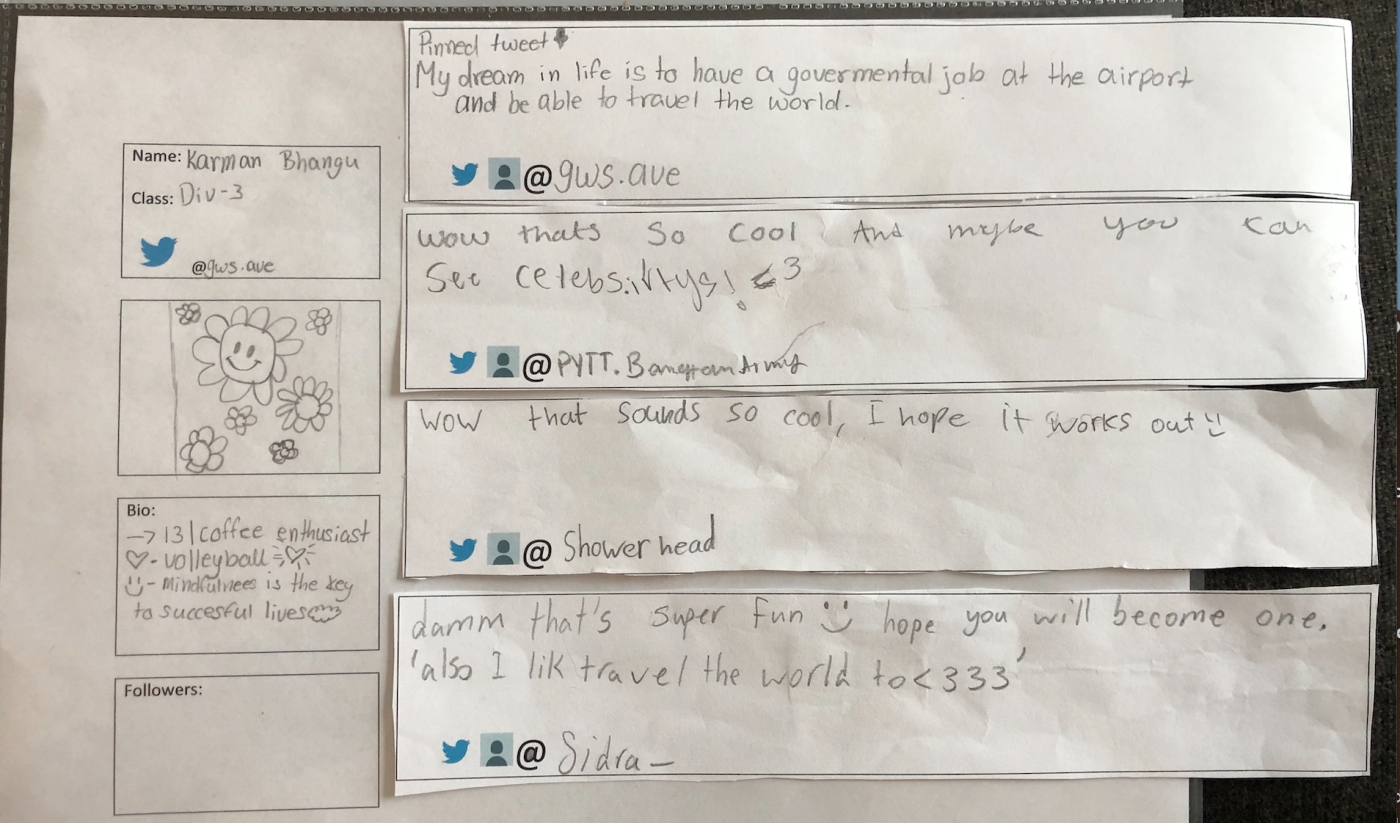 Name: Karman Bhangu
Class: Div-3
@gws.ave
Bio:
→ 13 | coffee enthusiast
♡- volleyball ♡
- Mindfulnees is the key
to succesful lives
Followers:
Pinned tweet
My dream in life is to have a govermental job at the airport
and be able to travel the world.
@gws.ave
wow thats so cool And mybe you can
See celebsirtys! <3
@PYTT.BangtanArmy
wow that sounds so cool, I hope it works out
@Showerhead
damm that's super fun hope you will become one.
'also I lik travel the world to <333'
@Sidra_